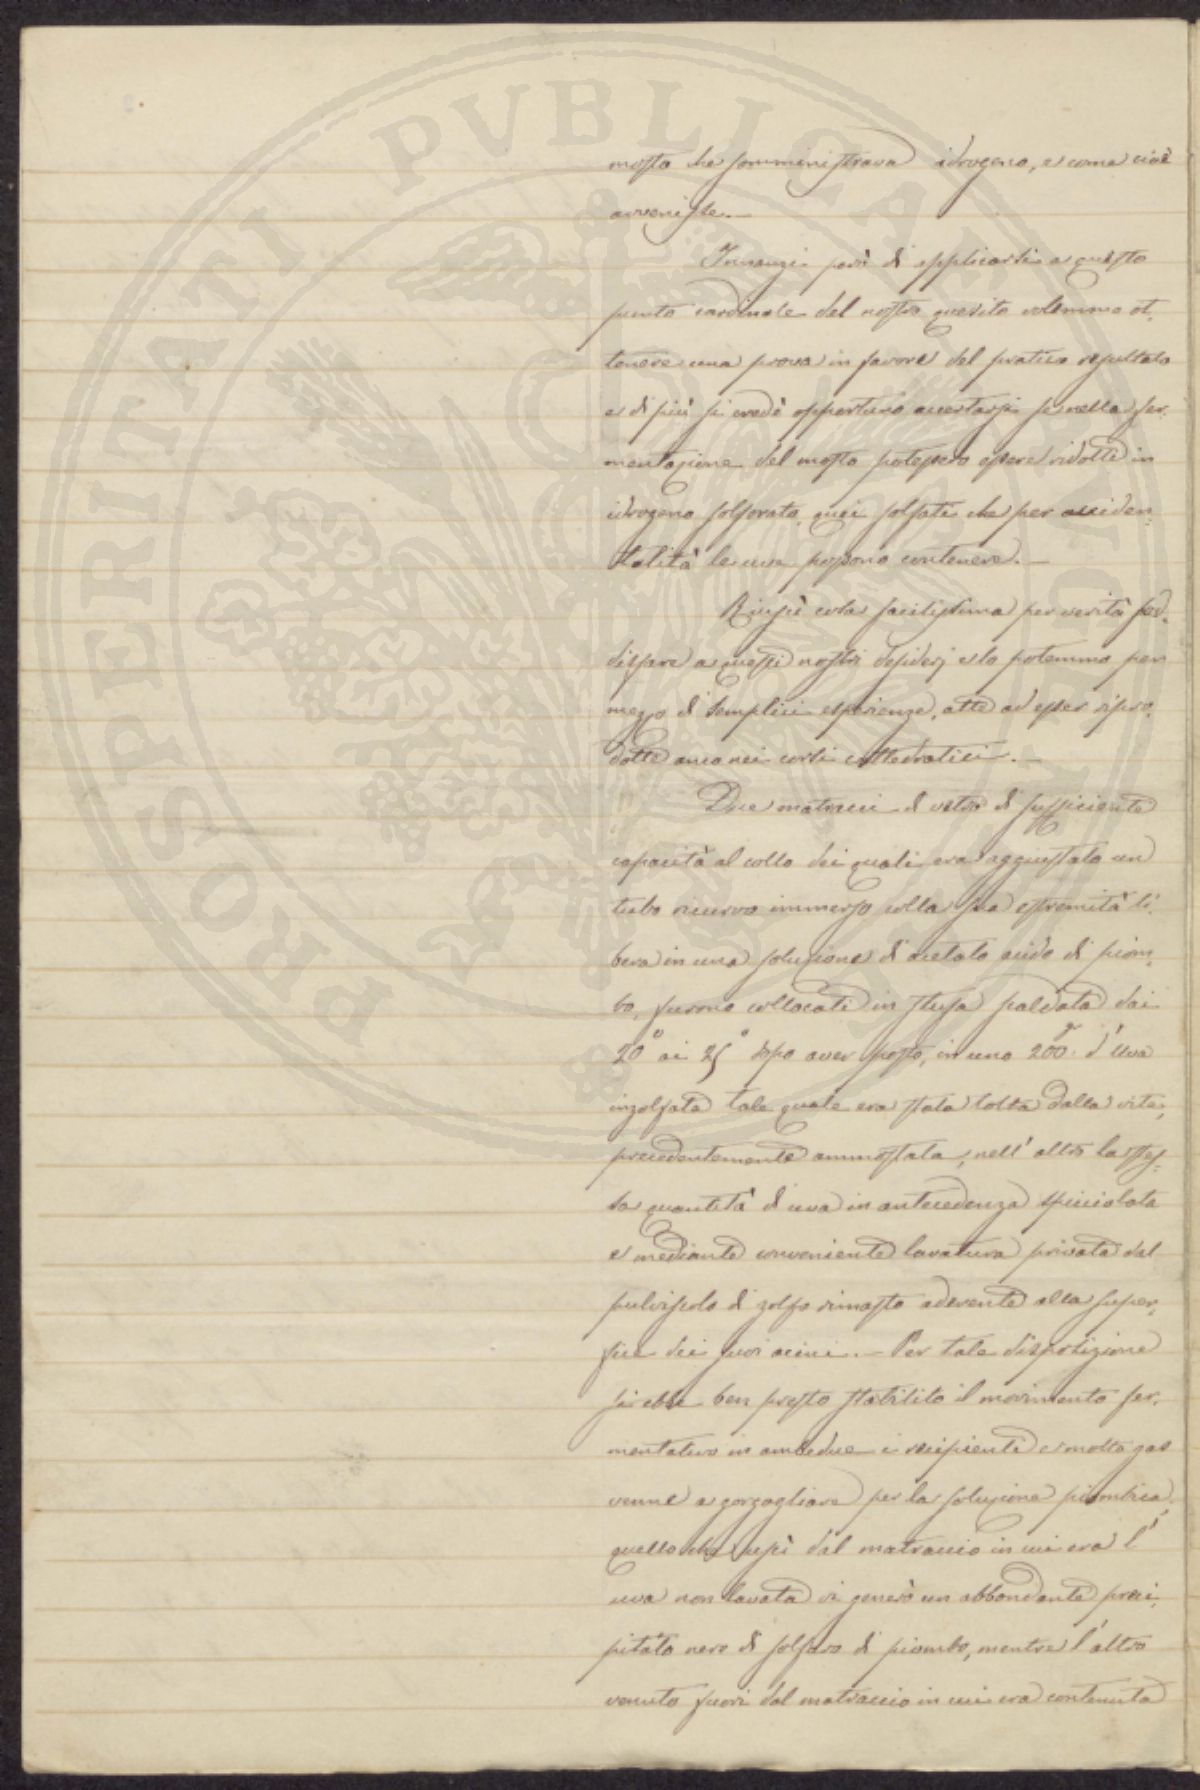 PROSPERITATI PUBLICAE AUGENDAE
mosto che somministrava idrogeno, e come ciò
avvenisse. —
Innanzi però di applicarsi a questo
punto cardinale del nostro quesito volemmo ot-
tenere una prova in favore del pratico resultato
e di più si credè opportuno accertarsi se nella fer-
mentazione del mosto potessero essere ridotti in
idrogeno solforato, quei solfati che per acciden
talità le uve possono contenere. —
Riuscì cosa facilissima per verità sod-
disfare a questi nostri desiderj e lo potemmo per
mezzo di semplici esperienze, atte ad esser ripro-
dotte anco nei corsi cattedratici. —
Due matracci di vetro di sufficiente
capacità al collo dei quali era aggiustato un
tubo ricurvo immerso colla sua estremità li-
bera in una soluzione di acetato acido di piom-
bo, furono collocati in stufa scaldata dai
20° ai 25° dopo aver posto, in uno 200 gr. d'uva
inzolfata tale quale era stata tolta dalla vite,
precedentemente ammostata, nell'altro la stes-
sa quantità di uva in antecedenza spicciolata
e mediante conveniente lavatura privata del
pulviscolo di zolfo rimasto aderente alla super-
ficie dei suoi acini. — Per tale disposizione
si ebbe ben presto stabilito il movimento fer-
mentativo in ambedue i recipienti e molto gas
venne a gorgogliare per la soluzione piombica,
quello che uscì dal matraccio in cui era l'
uva non lavata vi generò un abbondante preci-
pitato nero di solfuro di piombo, mentre l'altro
venuto fuori dal matraccio in cui era contenuta